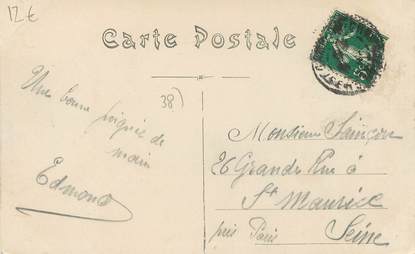 12€
Carte Postale
38)
Une bonne poignée de
main
Edmond
Monsieur Sainçon
26 Grande Rue à
St Maurice
près Paris Seine